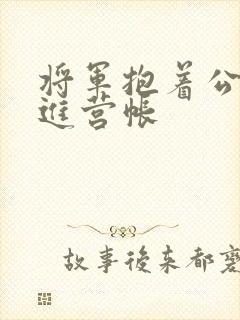 将军抱着公
进营帐
故事後来都